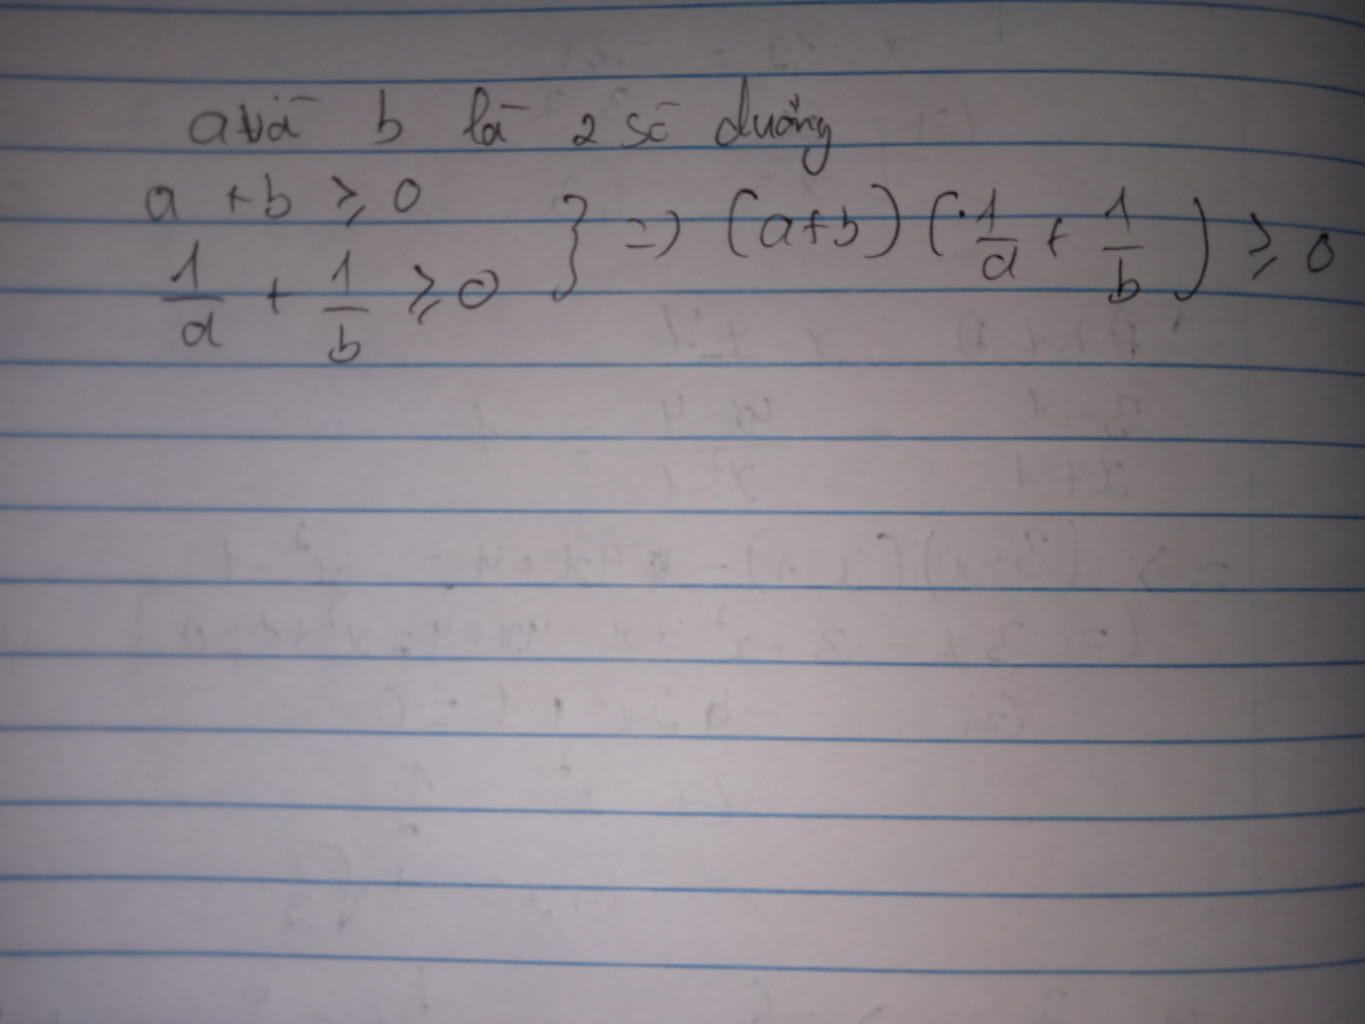 a và b là 2 số dương
a + b ≥ 0
1/a + 1/b ≥ 0 } => (a+b) (1/a + 1/b) ≥ 0